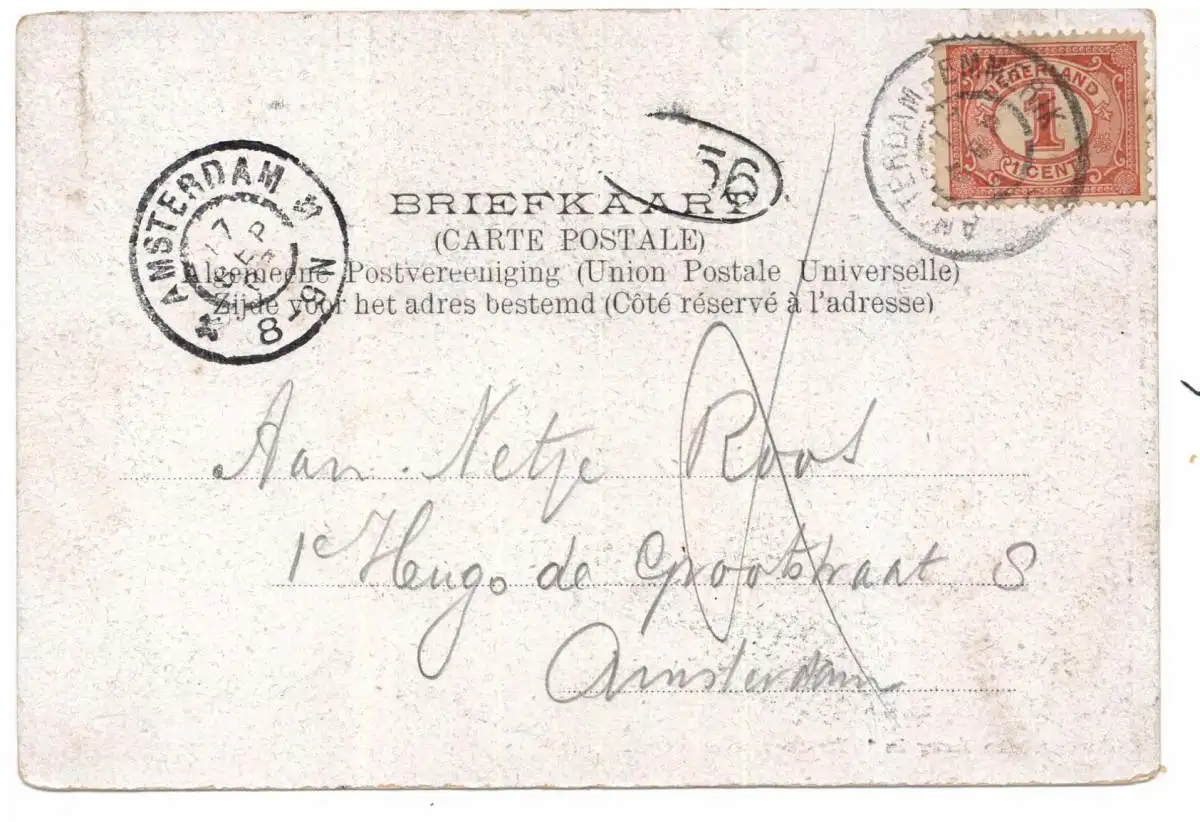 NEDERLAND
1
1 CENT
AMSTERDAM EMMERIK
56
AMSTERDAM
17 SEP
8-9 N
BRIEFKAART
(CARTE POSTALE)
Algemeene Postvereeniging (Union Postale Universelle)
Zijde voor het adres bestemd (Côté réservé à l'adresse)
Aan Netje Roos
1e Hugo de Grootstraat 8
Amsterdam